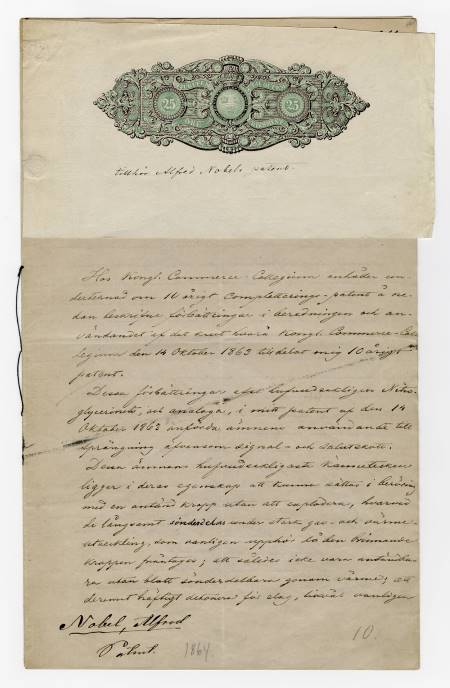 25 25
tillhör Alfred Nobels patent.
Hos Kongl. Commerce-Collegium anhåller un-
dertecknad om 10 årigt Completterings-patent å ne-
dan beskrifne förbättringar i beredningen och an-
vändandet af det krut hvarå Kongl. Commerce-Col-
legium den 14 Oktober 1863 tilldelat mig 10 årigt
patent.
Dessa förbättringar afse hufvudsakligen Nitro-
glycerinets, och analoga, i mitt patent af den 14
Oktober 1863 anförda ämnens användande till
sprängning äfvensom signal- och salutskott.
Dessa ämnens hufvudsakligaste kännetecken
ligger i deras egenskap att kunna sättas i beröring
med en antänd kropp utan att explodera, hvarvid
de långsamt sönderdelas under stark gas- och värme-
utveckling, som vanligen upphör då den brinnande
kroppen fråntages; att således icke vara antändba-
ra utan blott sönderdelbara genom värme; att
deremot häftigt detonera för slag, hvarvid vanligen
Nobel, Alfred
Patent. 1864
10.